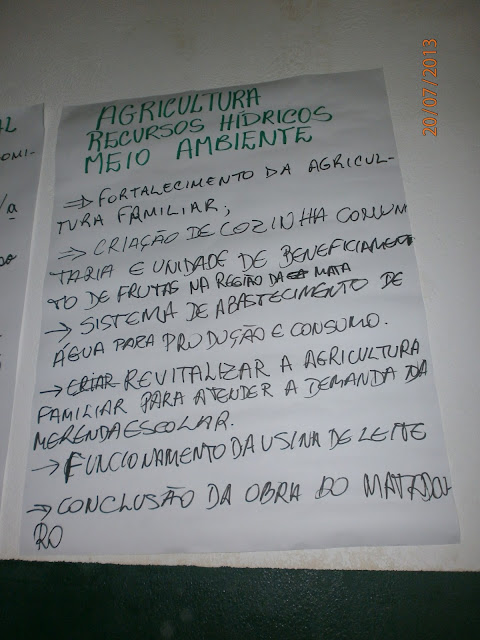 AGRICULTURA
RECURSOS HÍDRICOS
MEIO AMBIENTE
⇒ FORTALECIMENTO DA AGRICUL-
TURA FAMILIAR;
⇒ CRIAÇÃO DE COZINHA COMUNI
TARIA E UNIDADE DE BENEFICIAMEN
TO DE FRUTAS NA REGIÃO DA MATA
→ SISTEMA DE ABASTECIMENTO DE
ÁGUA PARA PRODUÇÃO E CONSUMO.
→ CRIAR REVITALIZAR A AGRICULTURA
FAMILIAR PARA ATENDER A DEMANDA DA
MERENDA ESCOLAR.
→ FUNCIONAMENTO DA USINA DE LEITE
⇒ CONCLUSÃO DA OBRA DO MATADOU
RO
20/07/2013